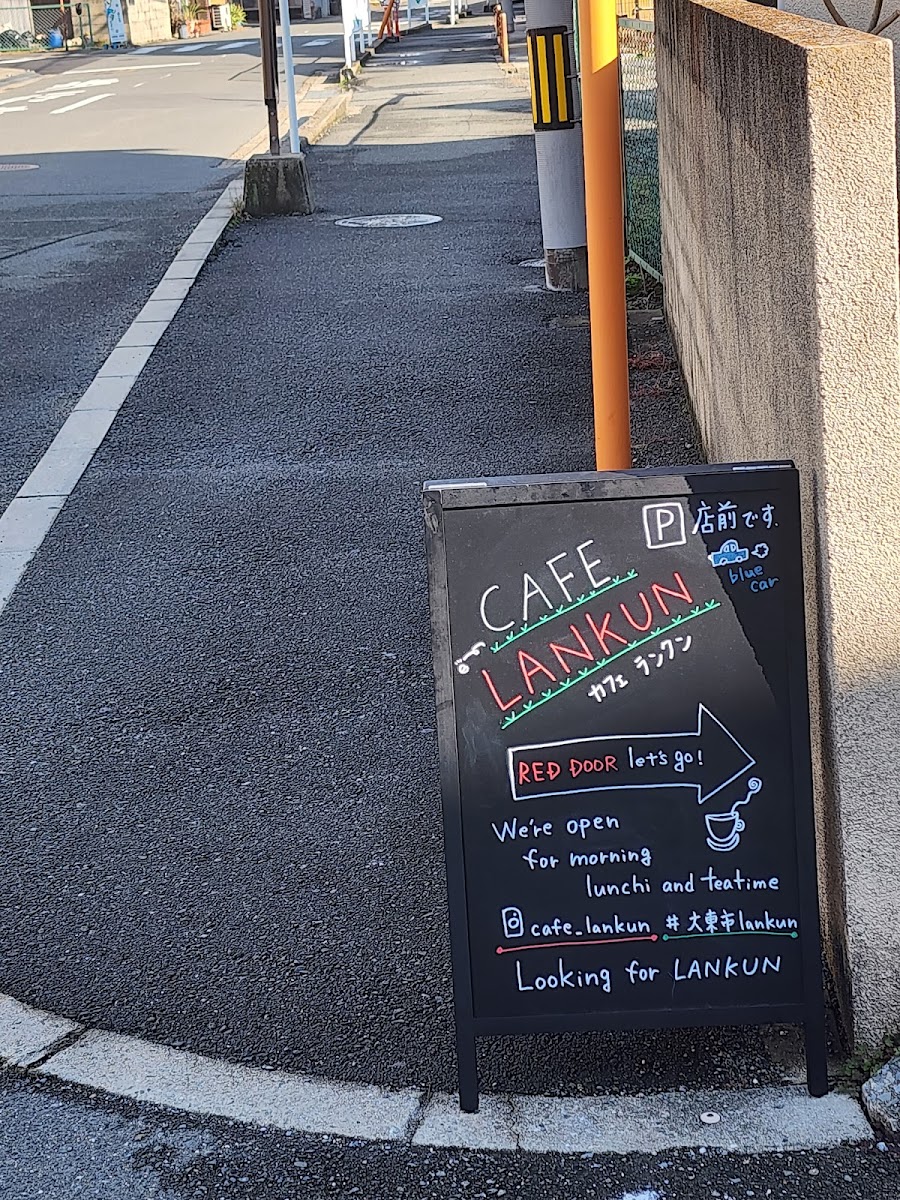 P 店前です.
blue
car
CAFE
LANKUN
カフェ ランクン
RED DOOR let's go!
We're open
for morning
lunchi and teatime
cafe_lankun #大東市lankun
Looking for LANKUN